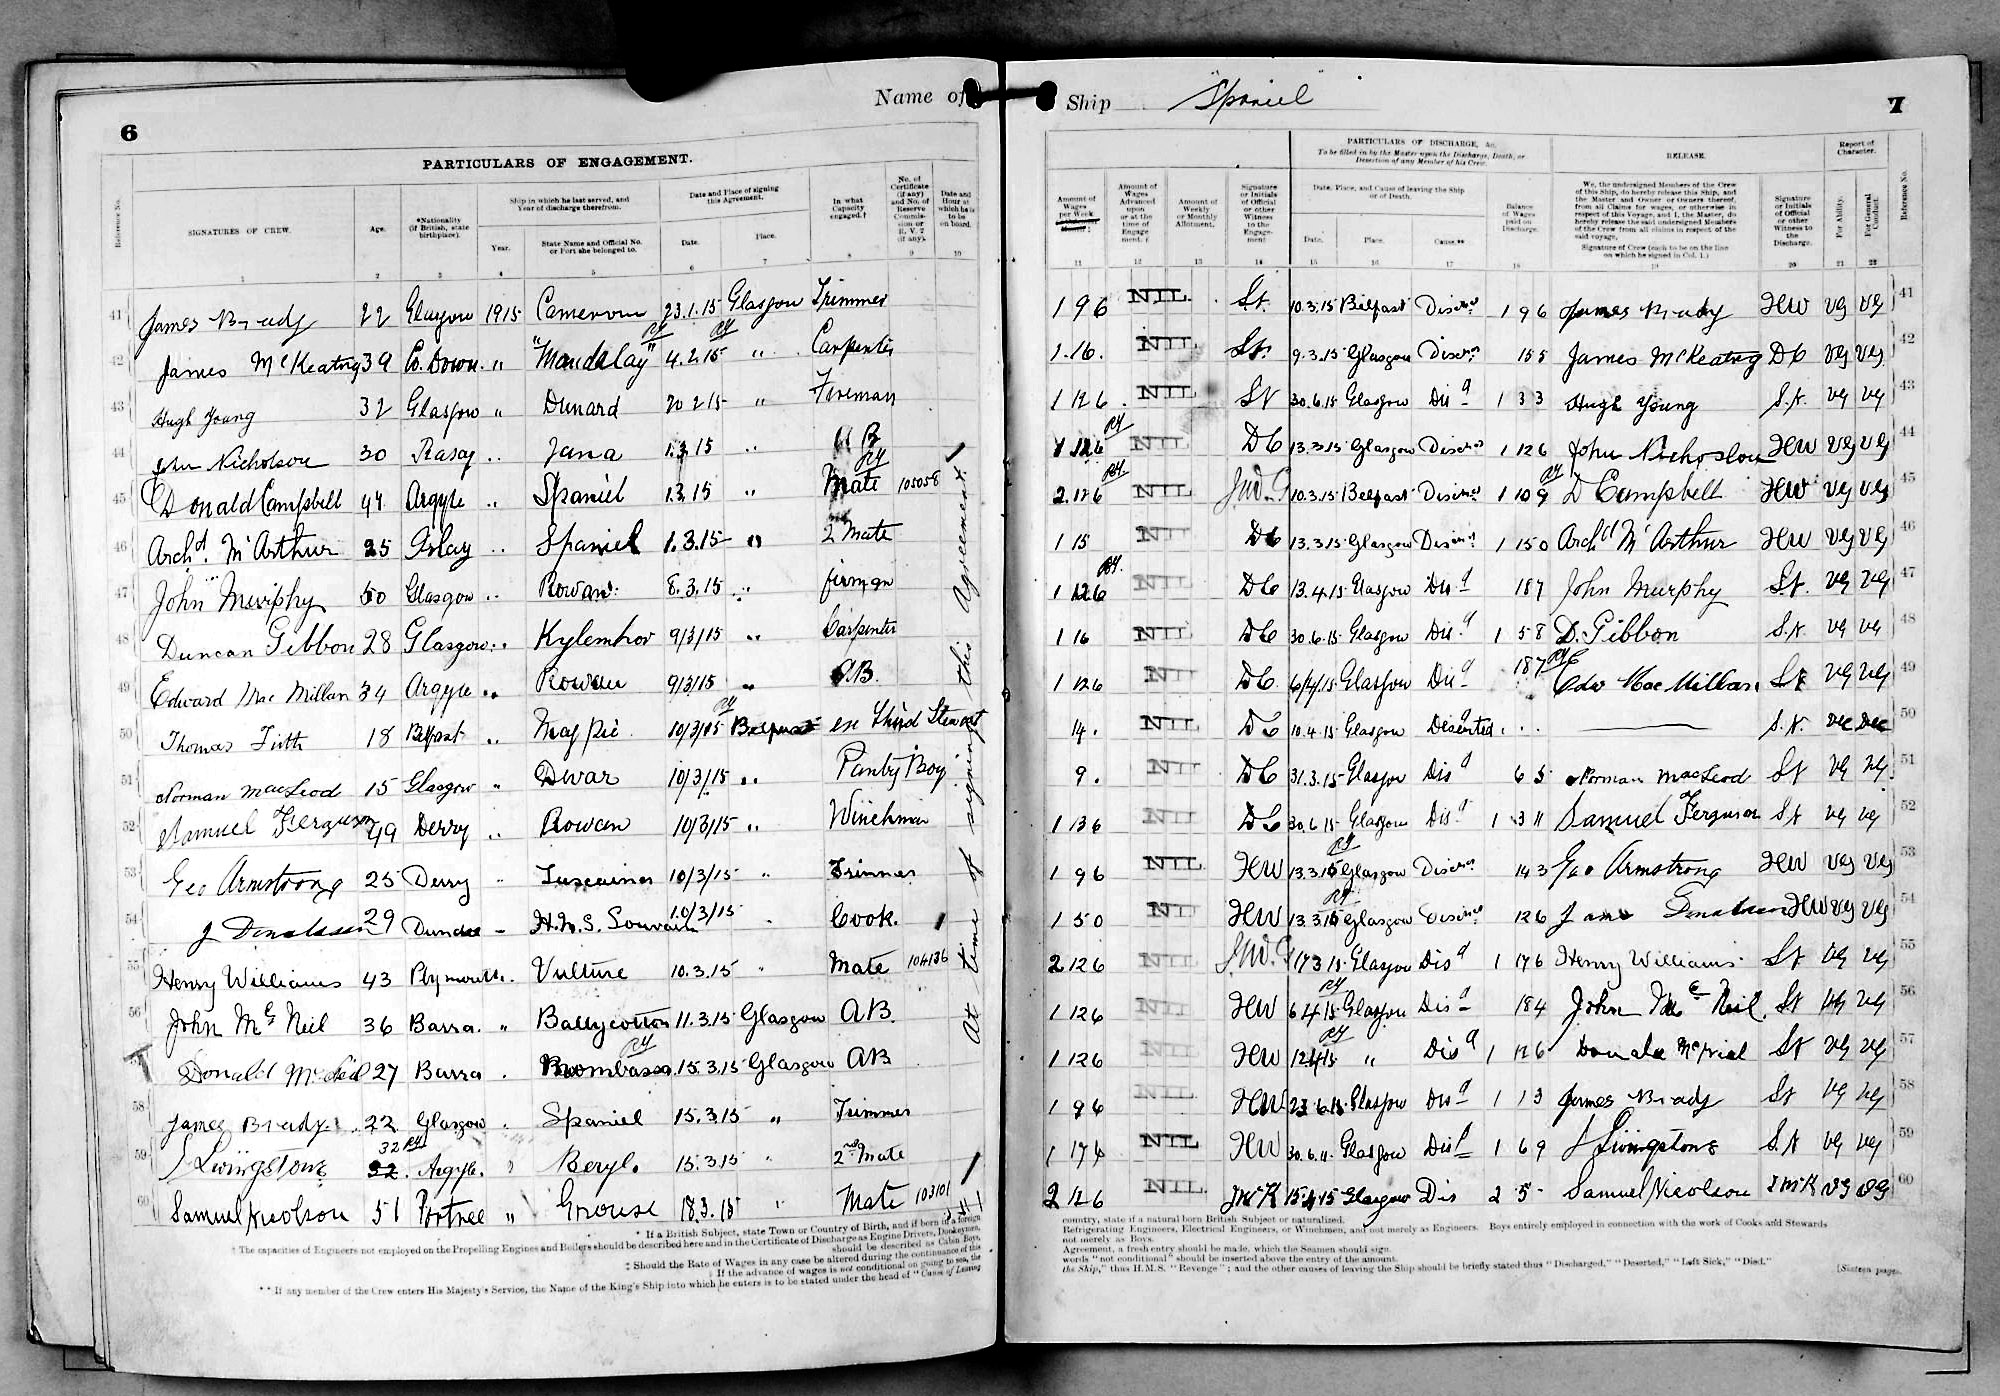 6
Name of
Ship "Spaniel"
7
PARTICULARS OF ENGAGEMENT.
Reference No.
SIGNATURES OF CREW.
Age.
*Nationality (if British, state birthplace).
Ship in which he last served, and Year of discharge therefrom.
Year.
State Name and Official No. or Port she belonged to.
Date and Place of signing this Agreement.
Date.
Place.
In what Capacity engaged.†
No. of Certificate (if any) and No. of Reserve Commission or R. V. 2 (if any).
Date and Hour at which he is to be on board.
1 2 3 4 5 6 7 8 9 10
41 James Brady 22 Glasgow 1915 Cameronia 23.1.15 Glasgow Trimmer
42 James McKeating 39 Co. Down. " "Mandalay" 4.2.15 " Carpenter
43 Hugh Young 32 Glasgow " Dunard 20 2 15 " Fireman
44 John Nicholson 30 Rasay " Jana 1.3.15 " A B
45 Donald Campbell 47 Argyle " Spaniel 1.3.15 " Mate 105058
46 Archd. McArthur 25 Islay " Spaniel 1.3.15 " 2 Mate
47 John Murphy 50 Glasgow " Rowan 8.3.15 " firman
48 Duncan Gibbon 28 Glasgow " Kylemhor 9/3/15 " Carpenter
49 Edward MacMillan 34 Argyle " Rowan 9/3/15 " A.B.
50 Thomas Firth 18 Belfast " Magpie 10/3/15 Belfast Third Steward
51 Norman MacLeod 15 Glasgow " Dwar 10/3/15 " Pantry Boy
52 Samuel Ferguson 49 Derry " Rowan 10/3/15 " Winchman
53 Geo Armstrong 25 Derry " 10/3/15 " Trimmer
54 J Donaldson 29 Dundee " H.M.S. 10/3/15 " Cook.
55 Henry Williams 43 Plymouth " Vulture 10.3.15 " Mate 104136
56 John McNeil 36 Barra. " Ballycotton 11.3.15 Glasgow AB.
Donald McNeil 27 Barra " 15.3.15 Glasgow AB
58 James Brady 22 Glasgow " Spaniel 15.3.15 " Trimmer
32 RY
59 J Livingstone 32 Argyle. " Beryl. 15.3.15 " 2nd Mate
60 Samuel Nicolson 51 Portree " Grouse 18.3.15 " Mate 103101
At time of signing this Agreement
* If a British Subject, state Town or Country of Birth, and if born in a foreign
† The capacities of Engineers not employed on the Propelling Engines and Boilers should be described here and in the Certificate of Discharge as Engine Drivers, Donkeymen,
should be described as Cabin Boys,
‡ Should the Rate of Wages in any case be altered during the continuance of this
§ If the advance of wages is not conditional on going to sea, the
** If any member of the Crew enters His Majesty's Service, the Name of the King's Ship into which he enters is to be stated under the head of "Cause of Leaving
PARTICULARS OF DISCHARGE, &c.
To be filled in by the Master upon the Discharge, Death, or Desertion of any Member of his Crew.
RELEASE.
Report of Character.
Amount of Wages per Week
Amount of Wages Advanced upon or at the time of Engagement. §
Amount of Weekly or Monthly Allotment.
Signature or Initials of Official or other Witness to the Engagement
Date, Place, and Cause of leaving the Ship or of Death.
Date.
Place.
Cause.**
Balance of Wages paid on Discharge.
We, the undersigned Members of the Crew of this Ship, do hereby release this Ship, and the Master and Owner or Owners thereof, from all Claims for wages, or otherwise in respect of this Voyage, and I, the Master, do hereby release the said undersigned Members of the Crew from all claims in respect of the said voyage.
Signature of Crew (each to be on the line on which he signed in Col. 1.)
Signature or Initials of Official or other Witness to the Discharge.
For Ability.
For General Conduct.
Reference No.
11 12 13 14 15 16 17 18 19 20 21 22
1 9 6 NIL. St. 10.3.15 Belfast 1 9 6 James Brady HW VG VG 41
1.16. NIL St. 9.3.15 Glasgow 15 5 James McKeating DC VG VG 42
1 12 6 NIL St 30.6.15 Glasgow Disd 1 3 3 Hugh Young S.t. VG VG 43
1 12 6 NIL DC 13.3.15 Glasgow 1 12 6 John Nicholson HW VG VG 44
2.12 6 NIL J.W.G 10.3.15 Belfast 1 10 9 D Campbell HW VG VG 45
1 15 NIL DC 13.3.15 Glasgow 1 15 0 Archd McArthur HW VG VG 46
1 12 6 NIL DC 13.4.15 Glasgow Disd 18 7 John Murphy St. VG VG 47
1 16 NIL DC 30.6.15 Glasgow Disd 1 5 8 D. Gibbon S.t. VG VG 48
1 12 6 NIL DC. 6/4/15 Glasgow Disd 18 7 Edw MacMillan St VG VG 49
14. NIL DC 10.4.15 Glasgow Deserted. S.t. Dec Dec 50
9. NIL DC 31.3.15 Glasgow Disd 6 5 Norman MacLeod St VG VG 51
1 13 6 NIL DC 30.6.15 Glasgow Disd 1 3 11 Samuel Ferguson St VG VG 52
1 9 6 NIL HW 13.3.15 Glasgow 14 3 Geo Armstrong HW VG VG 53
1 5 0 NIL HW 13.3.15 Glasgow 12 6 James Donaldson HW VG VG 54
2 12 6 NIL J.W.G 17 3 15 Glasgow Disd 1 17 6 Henry Williams St VG VG 55
1 12 6 NIL HW 6 4 15 Glasgow Disd 18 4 John McNeil. St VG VG 56
1 12 6 NIL HW 12.4.15 " Disd 1 12 6 Donald McNeil St VG VG 57
1 9 6 NIL HW 23.6.15 Glasgow Disd 1 1 3 James Brady St VG VG 58
1 17 6 NIL HW 30.6.15 Glasgow Disd 1 6 9 J Livingstone S.t VG VG 59
2 12 6 NIL. JMcK 15 4 15 Glasgow Dis 2 5 - Samuel Nicolson JMcK VG VG 60
country, state if a natural born British Subject or naturalized.
Refrigerating Engineers, Electrical Engineers, or Winchmen, and not merely as Engineers. Boys entirely employed in connection with the work of Cooks and Stewards
not merely as Boys.
Agreement, a fresh entry should be made, which the Seamen should sign.
words "not conditional" should be inserted above the entry of the amount.
the Ship," thus H.M.S. "Revenge"; and the other causes of leaving the Ship should be briefly stated thus "Discharged," "Deserted," "Left Sick," "Died."
[Sixteen page.